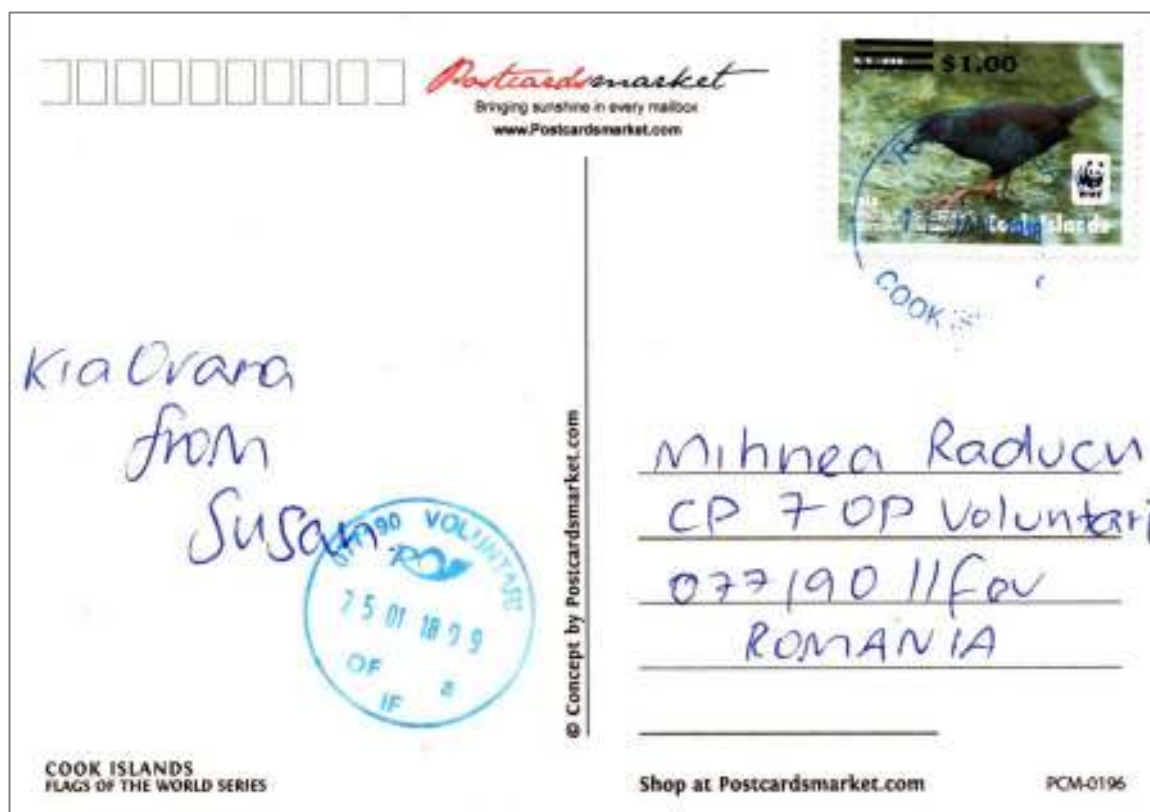 Postcardsmarket
Bringing sunshine in every mailbox
www.Postcardsmarket.com
$1.00
WWF
Cook Islands
COOK
Kia Orana
from
Susan
077190 VOLUNTARI
25 01 18 09
OF a
IF
© Concept by Postcardsmarket.com
Mihnea Raducu
CP 7 OP Voluntari
077190 Ilfov
ROMANIA
COOK ISLANDS
FLAGS OF THE WORLD SERIES
Shop at Postcardsmarket.com
PCM-0196